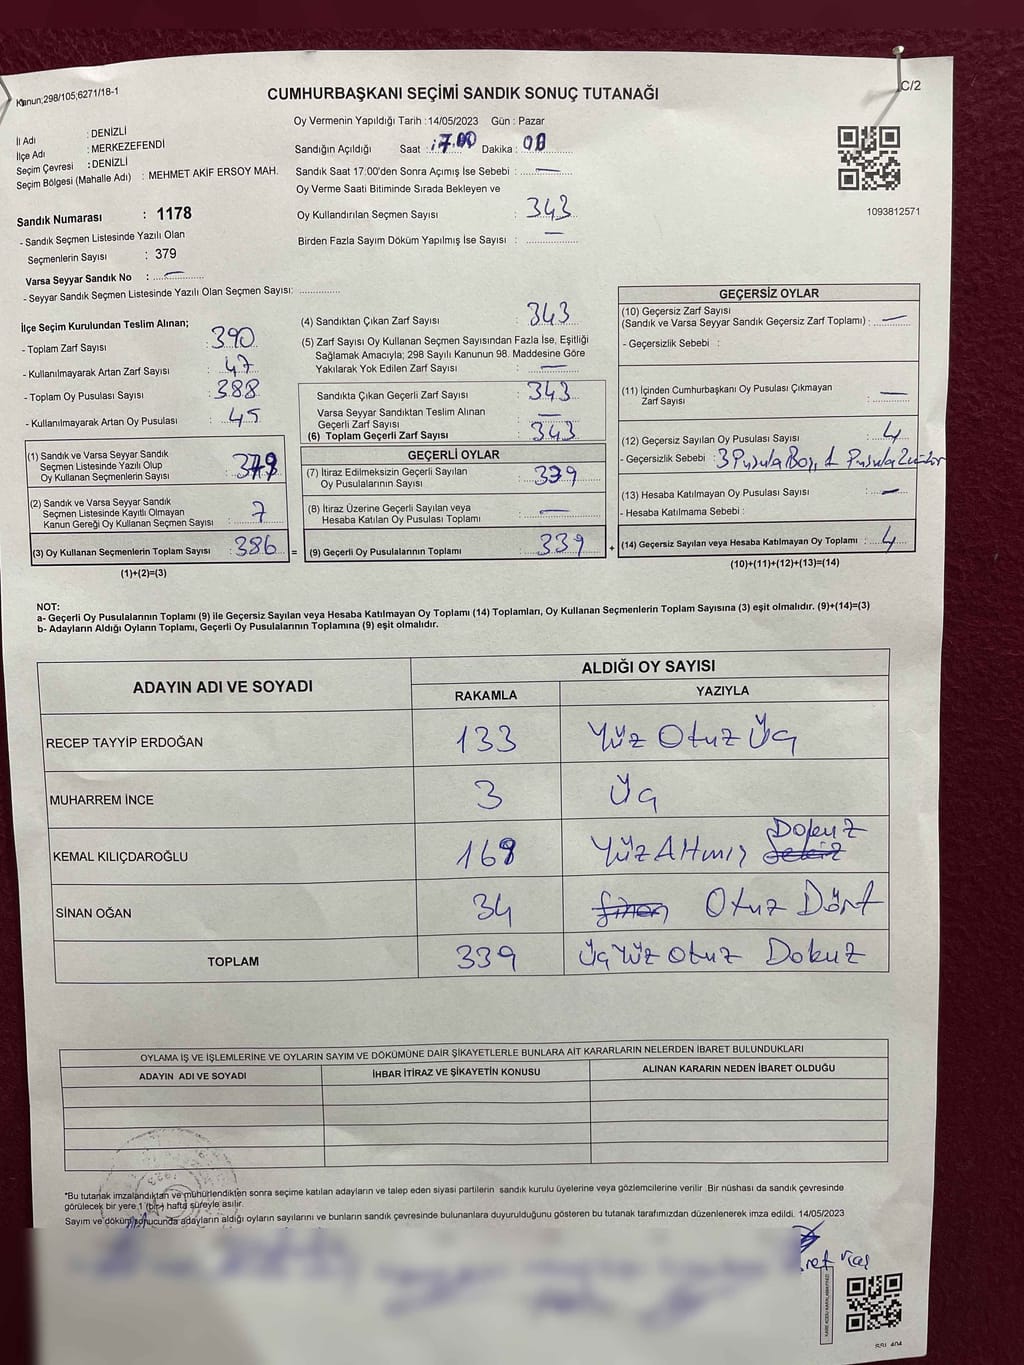 Kanun;298/105;6271/18-1
CUMHURBAŞKANI SEÇİMİ SANDIK SONUÇ TUTANAĞI
C/2
İl Adı : DENİZLİ
İlçe Adı : MERKEZEFENDİ
Seçim Çevresi : DENİZLİ
Seçim Bölgesi (Mahalle Adı) : MEHMET AKİF ERSOY MAH.
Sandık Numarası : 1178
- Sandık Seçmen Listesinde Yazılı Olan
Seçmenlerin Sayısı : 379
Varsa Seyyar Sandık No : —
- Seyyar Sandık Seçmen Listesinde Yazılı Olan Seçmen Sayısı:
Oy Vermenin Yapıldığı Tarih :14/05/2023 Gün : Pazar
Sandığın Açıldığı Saat : 17.00 Dakika : 00
Sandık Saat 17:00'den Sonra Açımış İse Sebebi : —
Oy Verme Saati Bitiminde Sırada Bekleyen ve
Oy Kullandırılan Seçmen Sayısı : 343
Birden Fazla Sayım Döküm Yapılmış İse Sayısı : —
1093812571
İlçe Seçim Kurulundan Teslim Alınan;
- Toplam Zarf Sayısı : 390
- Kullanılmayarak Artan Zarf Sayısı : 47
- Toplam Oy Pusulası Sayısı : 388
- Kullanılmayarak Artan Oy Pusulası : 45
(1) Sandık ve Varsa Seyyar Sandık
Seçmen Listesinde Yazılı Olup
Oy Kullanan Seçmenlerin Sayısı : 379
(2) Sandık ve Varsa Seyyar Sandık
Seçmen Listesinde Kayıtlı Olmayan
Kanun Gereği Oy Kullanan Seçmen Sayısı : 7
(3) Oy Kullanan Seçmenlerin Toplam Sayısı : 386 =
(1)+(2)=(3)
(4) Sandıktan Çıkan Zarf Sayısı : 343
(5) Zarf Sayısı Oy Kullanan Seçmen Sayısından Fazla İse, Eşitliği
Sağlamak Amacıyla; 298 Sayılı Kanunun 98. Maddesine Göre
Yakılarak Yok Edilen Zarf Sayısı : —
Sandıkta Çıkan Geçerli Zarf Sayısı : 343
Varsa Seyyar Sandıktan Teslim Alınan
Geçerli Zarf Sayısı : —
(6) Toplam Geçerli Zarf Sayısı : 343
GEÇERLİ OYLAR
(7) İtiraz Edilmeksizin Geçerli Sayılan
Oy Pusulalarının Sayısı : 339
(8) İtiraz Üzerine Geçerli Sayılan veya
Hesaba Katılan Oy Pusulası Toplamı : —
(9) Geçerli Oy Pusulalarının Toplamı : 339 +
GEÇERSİZ OYLAR
(10) Geçersiz Zarf Sayısı
(Sandık ve Varsa Seyyar Sandık Geçersiz Zarf Toplamı) : —
- Geçersizlik Sebebi :
(11) İçinden Cumhurbaşkanı Oy Pusulası Çıkmayan
Zarf Sayısı : —
(12) Geçersiz Sayılan Oy Pusulası Sayısı : 4
- Geçersizlik Sebebi : 3 Pusula Boş, 1 Pusula
(13) Hesaba Katılmayan Oy Pusulası Sayısı : —
- Hesaba Katılmama Sebebi :
(14) Geçersiz Sayılan veya Hesaba Katılmayan Oy Toplamı : 4
(10)+(11)+(12)+(13)=(14)
NOT:
a- Geçerli Oy Pusulalarının Toplamı (9) ile Geçersiz Sayılan veya Hesaba Katılmayan Oy Toplamı (14) Toplamları, Oy Kullanan Seçmenlerin Toplam Sayısına (3) eşit olmalıdır. (9)+(14)=(3)
b- Adayların Aldığı Oyların Toplamı, Geçerli Oy Pusulalarının Toplamına (9) eşit olmalıdır.
ADAYIN ADI VE SOYADI
ALDIĞI OY SAYISI
RAKAMLA YAZIYLA
RECEP TAYYİP ERDOĞAN 133 Yüz Otuz Üç
MUHARREM İNCE 3 Üç
KEMAL KILIÇDAROĞLU 169 Yüz Altmış Dokuz
SİNAN OĞAN 34 Otuz Dört
TOPLAM 339 Üç Yüz Otuz Dokuz
OYLAMA İŞ VE İŞLEMLERİNE VE OYLARIN SAYIM VE DÖKÜMÜNE DAİR ŞİKAYETLERLE BUNLARA AİT KARARLARIN NELERDEN İBARET BULUNDUKLARI
ADAYIN ADI VE SOYADI İHBAR İTİRAZ VE ŞİKAYETİN KONUSU ALINAN KARARIN NEDEN İBARET OLDUĞU
*Bu tutanak imzalandıktan ve mühürlendikten sonra seçime katılan adayların ve talep eden siyasi partilerin sandık kurulu üyelerine veya gözlemcilerine verilir .Bir nüshası da sandık çevresinde
görülecek bir yere 1 (bir) hafta süreyle asılır.
Sayım ve döküm sonucunda adayların aldığı oyların sayılarını ve bunların sandık çevresinde bulunanlara duyurulduğunu gösteren bu tutanak tarafımızdan düzenlenerek imza edildi. 14/05/2023